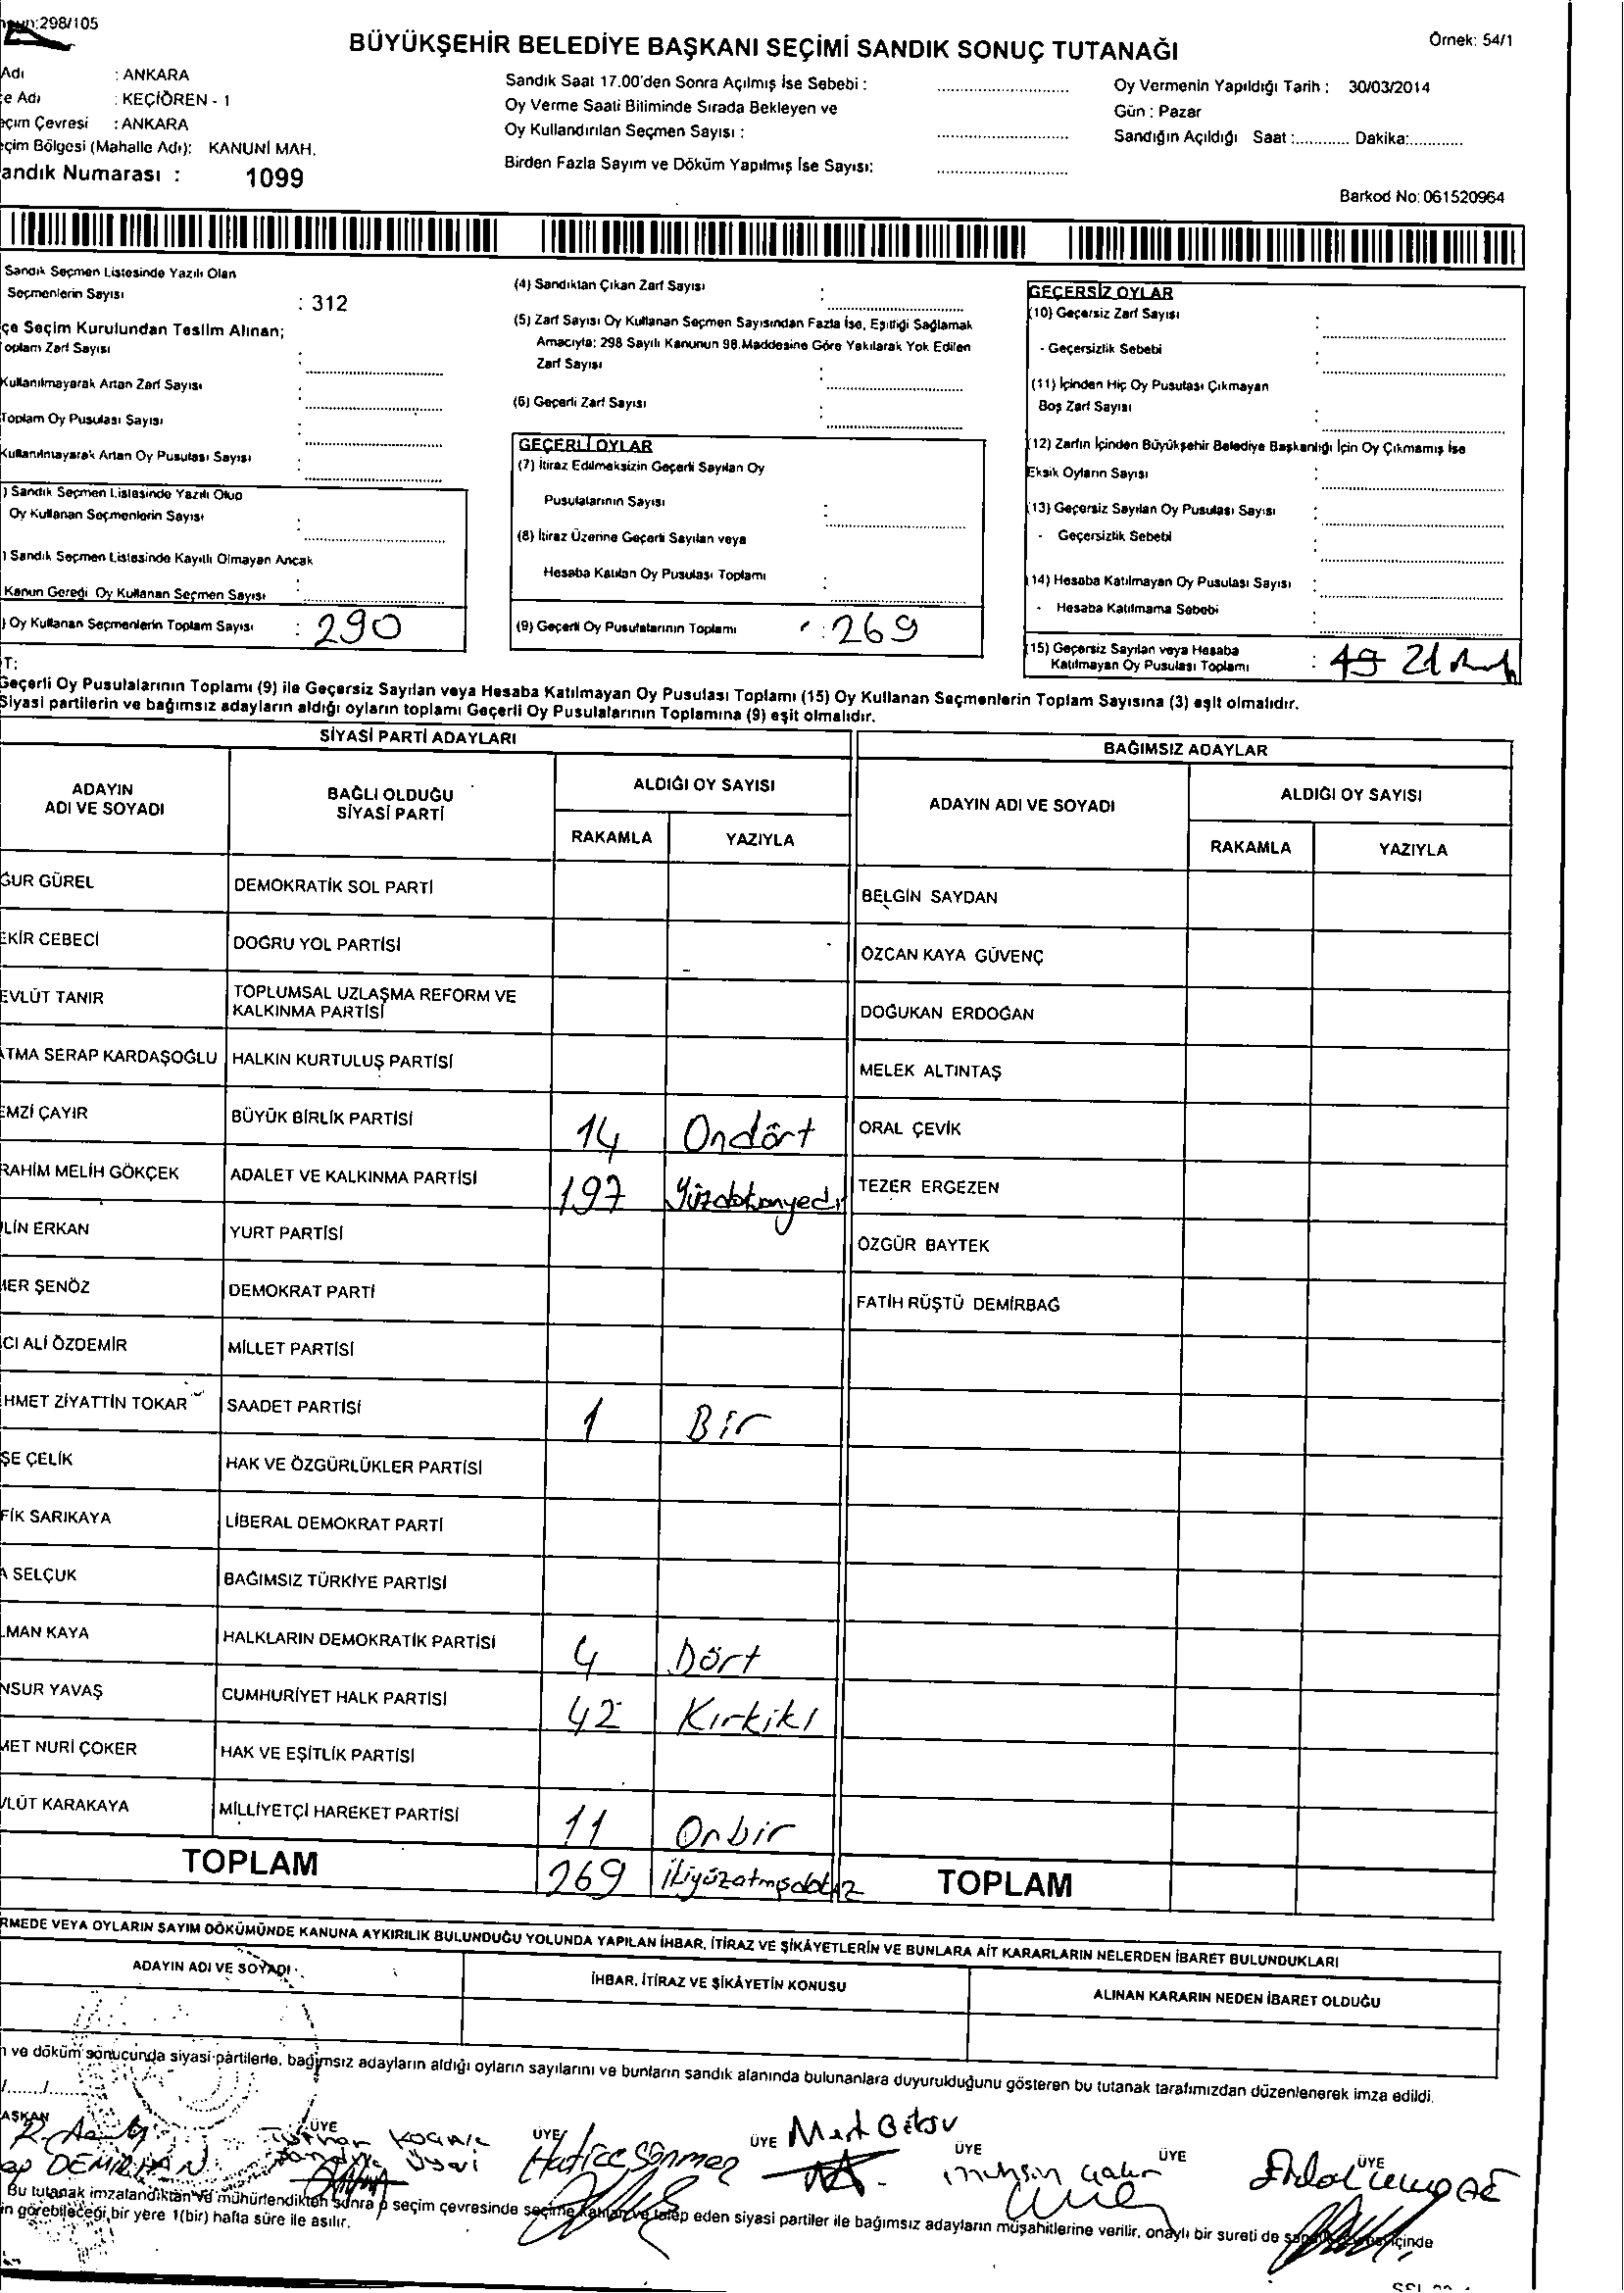 298/105
BÜYÜKŞEHİR BELEDİYE BAŞKANI SEÇİMİ SANDIK SONUÇ TUTANAĞI
Örnek: 54/1
Adı : ANKARA
e Adı : KEÇİÖREN - 1
eçim Çevresi : ANKARA
eçim Bölgesi (Mahalle Adı): KANUNİ MAH.
andık Numarası : 1099
Sandık Saat 17.00'den Sonra Açılmış İse Sebebi :
Oy Verme Saati Bitiminde Sırada Bekleyen ve
Oy Kullandırılan Seçmen Sayısı :
Birden Fazla Sayım ve Döküm Yapılmış İse Sayısı:
Oy Vermenin Yapıldığı Tarih : 30/03/2014
Gün : Pazar
Sandığın Açıldığı Saat :............ Dakika:............
Barkod No: 061520964
Sandık Seçmen Listesinde Yazılı Olan
Seçmenlerin Sayısı : 312
çe Seçim Kurulundan Teslim Alınan;
oplam Zarf Sayısı :
Kullanılmayarak Artan Zarf Sayısı :
Toplam Oy Pusulası Sayısı :
Kullanılmayarak Artan Oy Pusulası Sayısı :
) Sandık Seçmen Listesinde Yazılı Olup
Oy Kullanan Seçmenlerin Sayısı :
) Sandık Seçmen Listesinde Kayıtlı Olmayan Ancak
Kanun Gereği Oy Kullanan Seçmen Sayısı :
) Oy Kullanan Seçmenlerin Toplam Sayısı : 290
(4) Sandıktan Çıkan Zarf Sayısı :
(5) Zarf Sayısı Oy Kullanan Seçmen Sayısından Fazla İse, Eşitliği Sağlamak
Amacıyla; 298 Sayılı Kanunun 98.Maddesine Göre Yakılarak Yok Edilen
Zarf Sayısı :
(6) Geçerli Zarf Sayısı :
GEÇERLİ OYLAR
(7) İtiraz Edilmeksizin Geçerli Sayılan Oy
Pusulalarının Sayısı :
(8) İtiraz Üzerine Geçerli Sayılan veya
Hesaba Katılan Oy Pusulası Toplamı :
(9) Geçerli Oy Pusulalarının Toplamı : 269
GEÇERSİZ OYLAR
(10) Geçersiz Zarf Sayısı :
- Geçersizlik Sebebi :
(11) İçinden Hiç Oy Pusulası Çıkmayan
Boş Zarf Sayısı :
(12) Zarfın İçinden Büyükşehir Belediye Başkanlığı İçin Oy Çıkmamış İse
Eksik Oyların Sayısı :
(13) Geçersiz Sayılan Oy Pusulası Sayısı :
- Geçersizlik Sebebi :
(14) Hesaba Katılmayan Oy Pusulası Sayısı :
- Hesaba Katılmama Sebebi :
(15) Geçersiz Sayılan veya Hesaba
Katılmayan Oy Pusulası Toplamı : 49 21
T:
Geçerli Oy Pusulalarının Toplamı (9) ile Geçersiz Sayılan veya Hesaba Katılmayan Oy Pusulası Toplamı (15) Oy Kullanan Seçmenlerin Toplam Sayısına (3) eşit olmalıdır.
Siyasi partilerin ve bağımsız adayların aldığı oyların toplamı Geçerli Oy Pusulalarının Toplamına (9) eşit olmalıdır.
SİYASİ PARTİ ADAYLARI
BAĞIMSIZ ADAYLAR
ADAYIN ADI VE SOYADI
BAĞLI OLDUĞU SİYASİ PARTİ
ALDIĞI OY SAYISI
RAKAMLA YAZIYLA
ADAYIN ADI VE SOYADI
ALDIĞI OY SAYISI
RAKAMLA YAZIYLA
ĞUR GÜREL DEMOKRATİK SOL PARTİ BELGİN SAYDAN
EKİR CEBECİ DOĞRU YOL PARTİSİ ÖZCAN KAYA GÜVENÇ
EVLÜT TANIR TOPLUMSAL UZLAŞMA REFORM VE KALKINMA PARTİSİ DOĞUKAN ERDOĞAN
ATMA SERAP KARDAŞOĞLU HALKIN KURTULUŞ PARTİSİ MELEK ALTINTAŞ
EMZİ ÇAYIR BÜYÜK BİRLİK PARTİSİ 14 Ondört ORAL ÇEVİK
RAHİM MELİH GÖKÇEK ADALET VE KALKINMA PARTİSİ 197 Yüzdoksanyedi TEZER ERGEZEN
LİN ERKAN YURT PARTİSİ ÖZGÜR BAYTEK
MER ŞENÖZ DEMOKRAT PARTİ FATİH RÜŞTÜ DEMİRBAĞ
CI ALİ ÖZDEMİR MİLLET PARTİSİ
HMET ZİYATTİN TOKAR SAADET PARTİSİ 1 Bir
ŞE ÇELİK HAK VE ÖZGÜRLÜKLER PARTİSİ
FİK SARIKAYA LİBERAL DEMOKRAT PARTİ
A SELÇUK BAĞIMSIZ TÜRKİYE PARTİSİ
LMAN KAYA HALKLARIN DEMOKRATİK PARTİSİ 4 Dört
NSUR YAVAŞ CUMHURİYET HALK PARTİSİ 42 Kırkiki
MET NURİ ÇOKER HAK VE EŞİTLİK PARTİSİ
VLÜT KARAKAYA MİLLİYETÇİ HAREKET PARTİSİ 11 Onbir
TOPLAM 269 İkiyüzatmışdokuz TOPLAM
RMEDE VEYA OYLARIN SAYIM DÖKÜMÜNDE KANUNA AYKIRILIK BULUNDUĞU YOLUNDA YAPILAN İHBAR, İTİRAZ VE ŞİKÂYETLERİN VE BUNLARA AİT KARARLARIN NELERDEN İBARET BULUNDUKLARI
ADAYIN ADI VE SOYADI
İHBAR, İTİRAZ VE ŞİKÂYETİN KONUSU
ALINAN KARARIN NEDEN İBARET OLDUĞU
ve döküm sonucunda siyasi partilerle, bağımsız adayların aldığı oyların sayılarını ve bunların sandık alanında bulunanlara duyurulduğunu gösteren bu tutanak tarafımızdan düzenlenerek imza edildi.
AŞKAN ÜYE ÜYE ÜYE ÜYE ÜYE ÜYE
DEMİRHAN
Hatice Sönmez
Mert
muhsin
Bu tutanak imzalandıktan ve mühürlendikten sonra o seçim çevresinde seçime katılan ve talep eden siyasi partiler ile bağımsız adayların müşahitlerine verilir, onaylı bir sureti de içinde
in görebileceği bir yere 1(bir) hafta süre ile asılır.